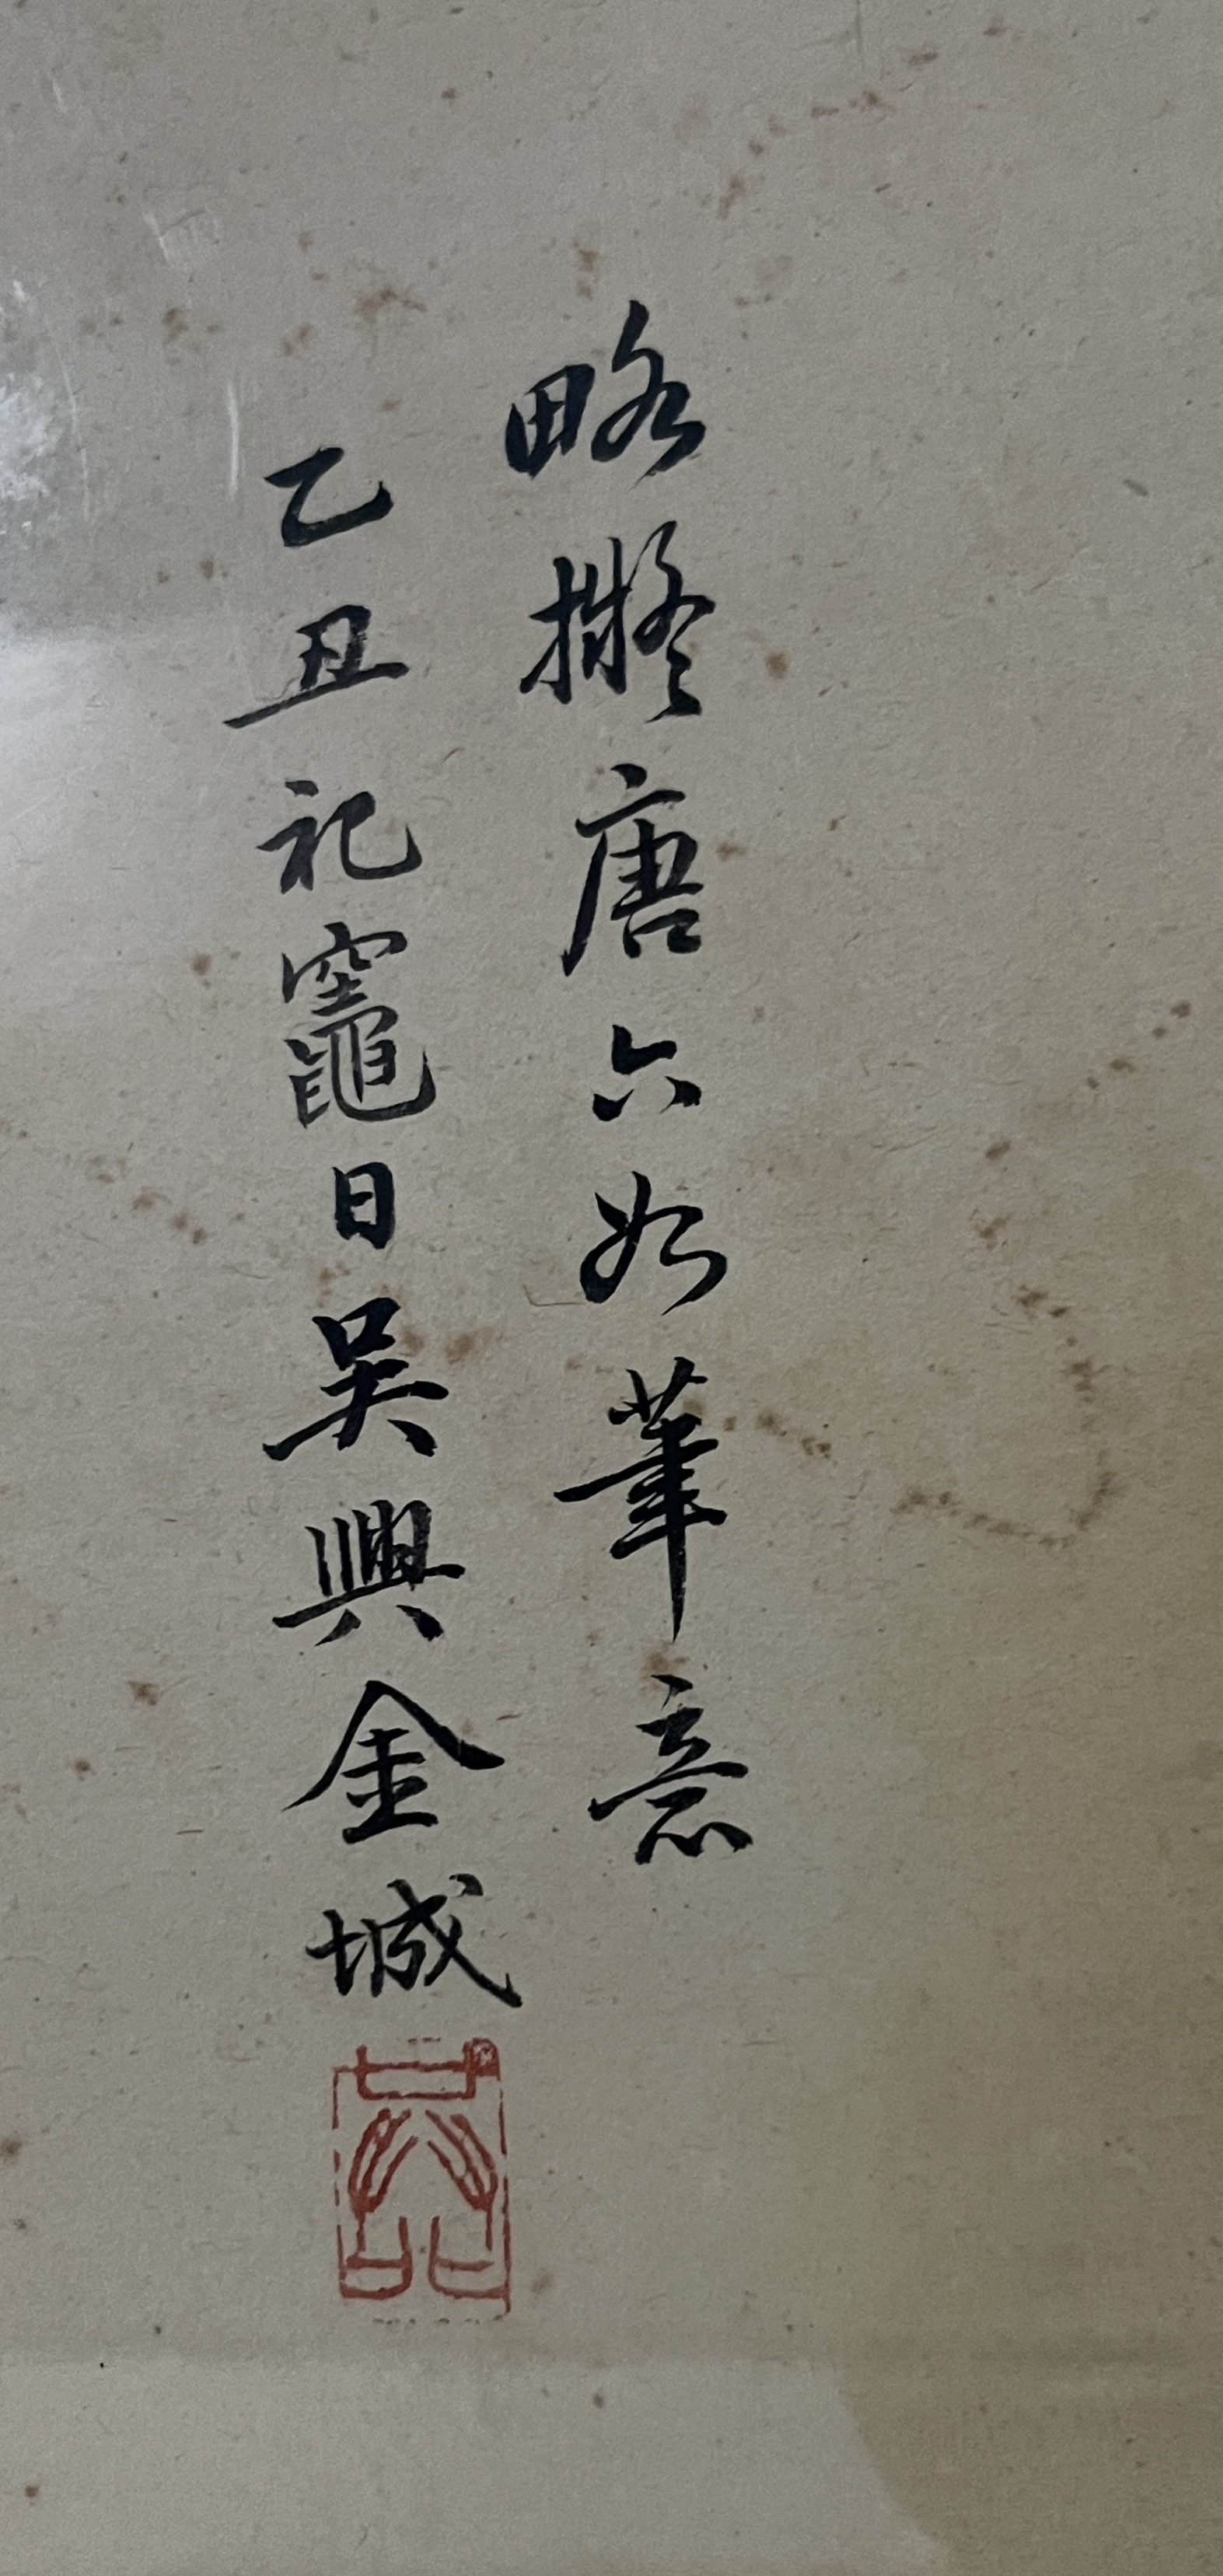 略擬唐六如筆意
乙丑祀竈日吳興金城